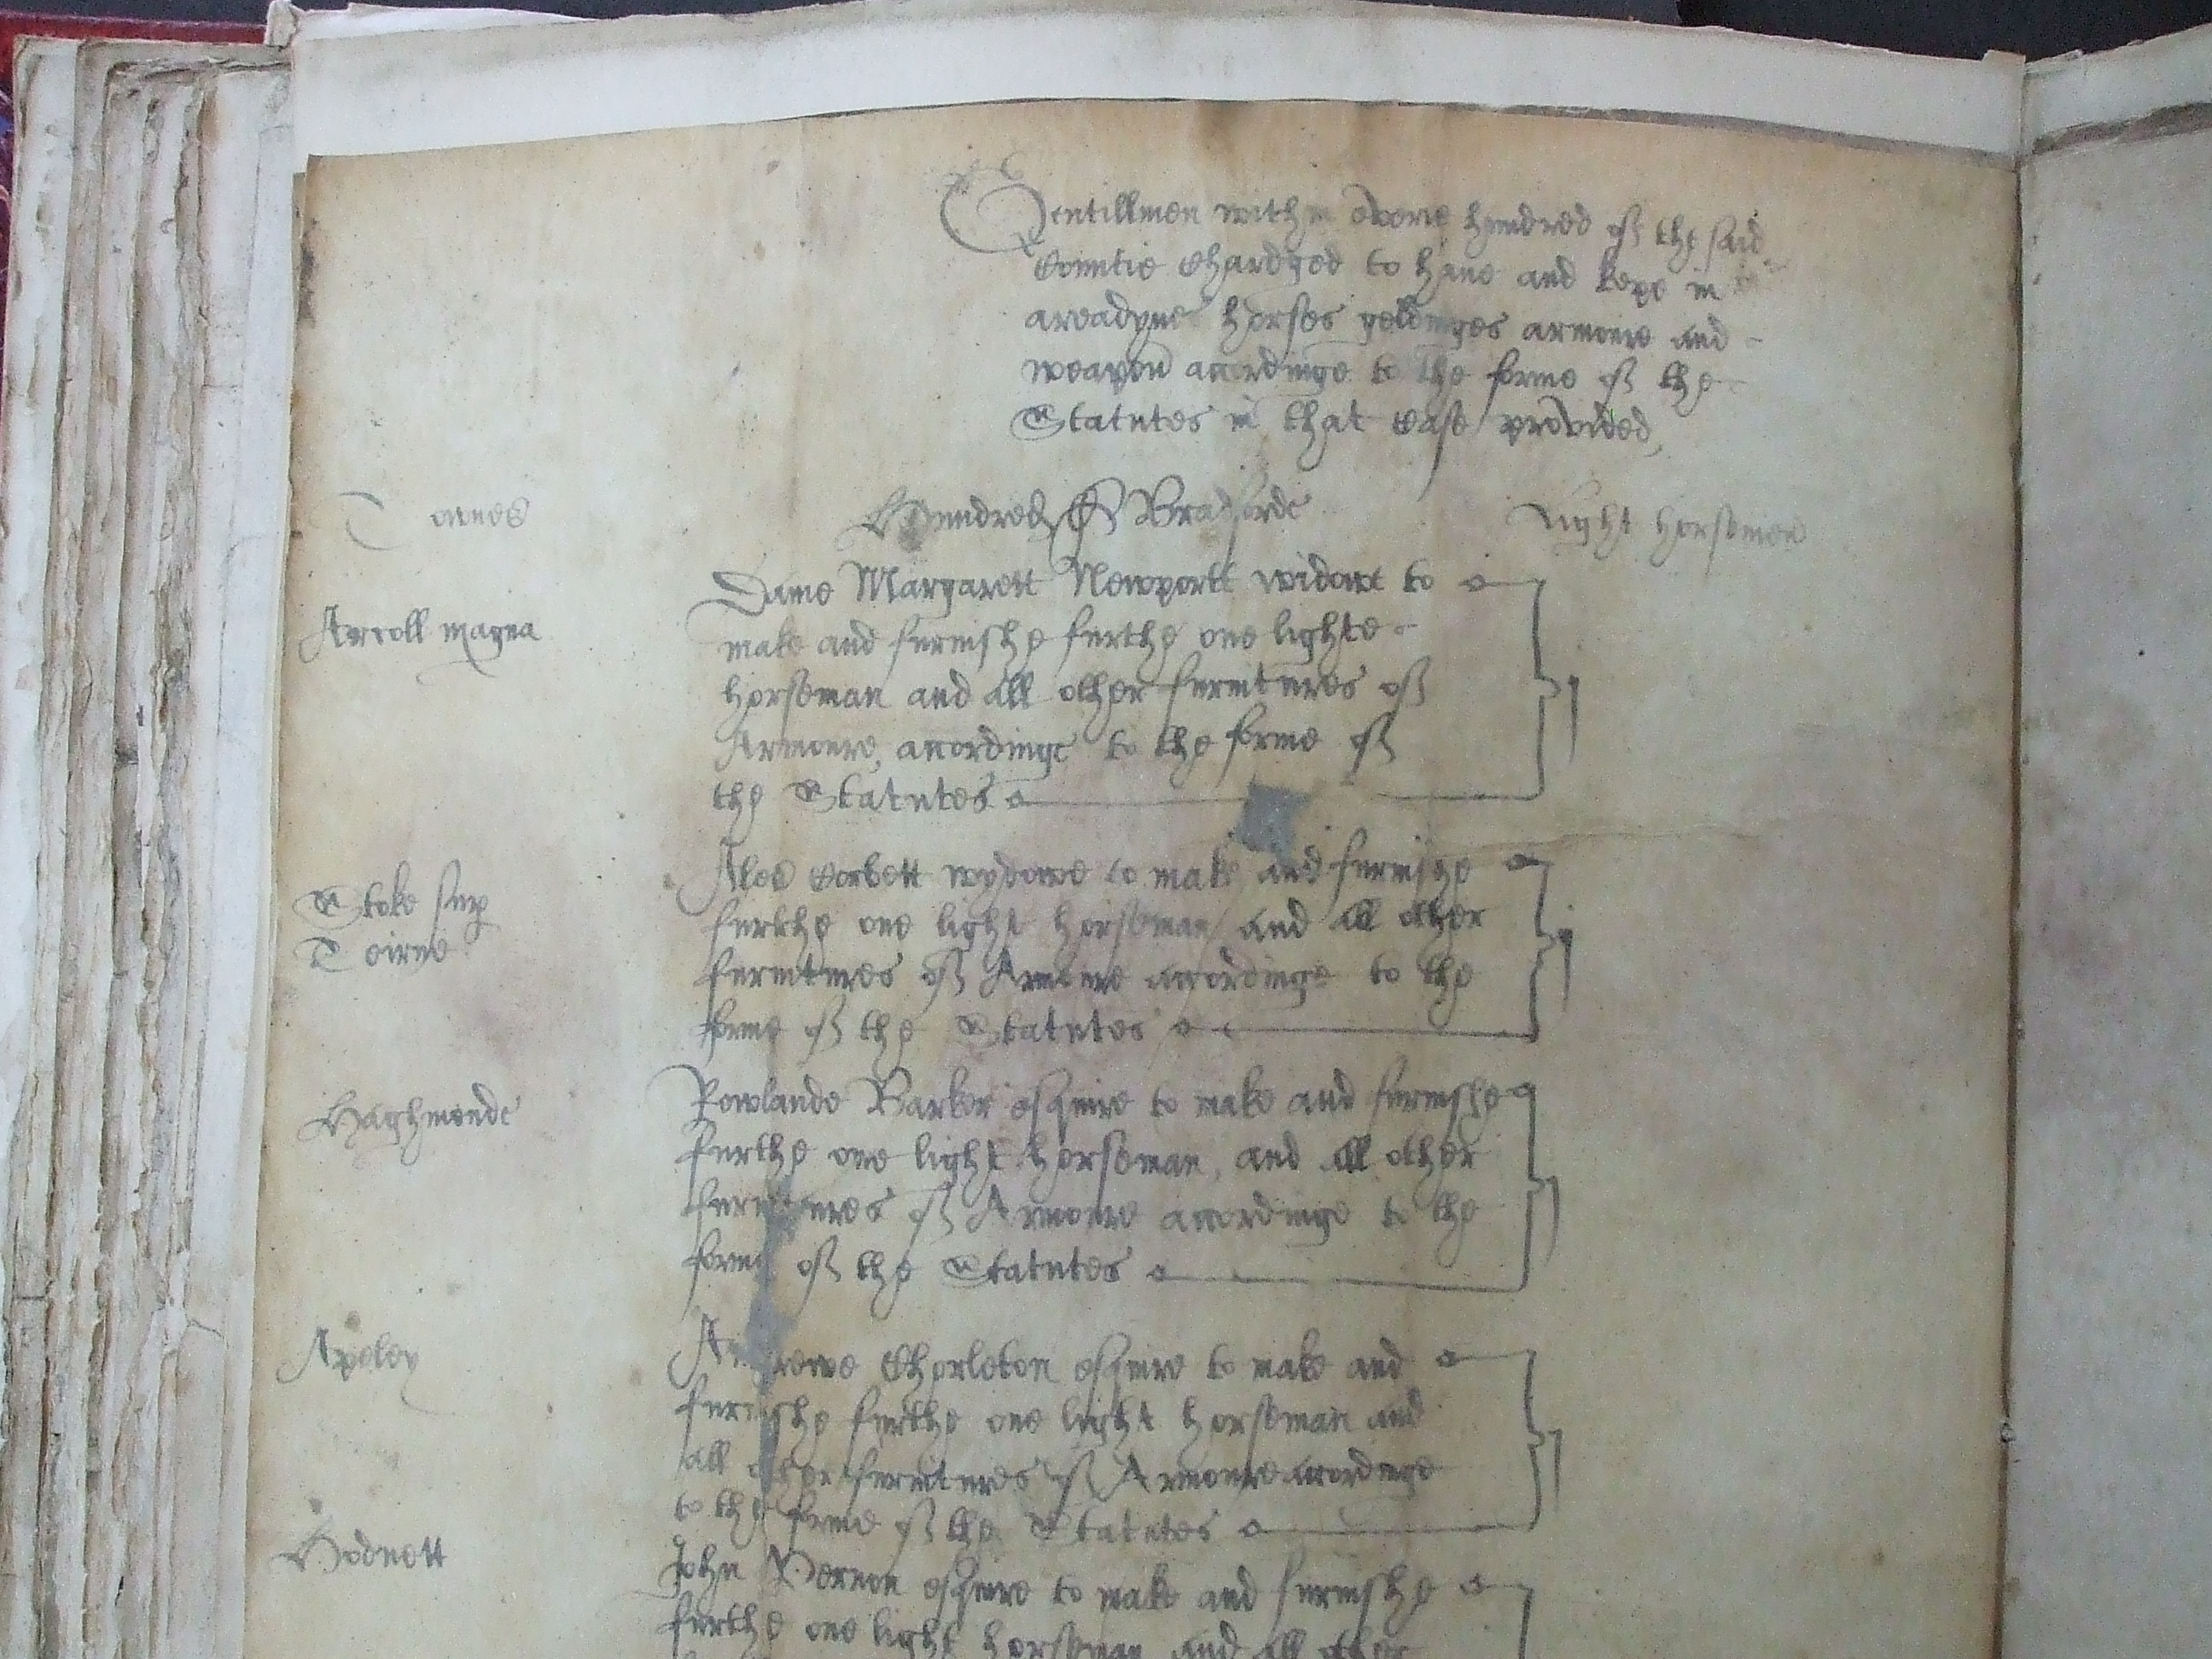 Gentillmen within everie hundred of the said
Countie Chardged to have and kepe in
areadynes horses geldinges armoure and
weapon accordinge to the forme of the
Statutes in that case provided,
Townes
Hundred of Bradforde
Light horsemen
Arcoll magna
Dame Margarett Newporte widowe to
make and furnishe furthe one lighte
horseman and all other furnitures of
Armoure, accordinge to the forme of
the Statutes
j
Stoke sup
Teirne
Alce Corbett wydowe to make and furnishe
furthe one light horseman and all other
furnitures of Armoure accordinge to the
forme of the Statutes
j
Haghmonde
Rowlande Barker esquire to make and furnishe
furthe one light horseman, and all other
furnitures of Armoure accordinge to the
forme of the Statutes
j
Apeley
Andrewe Chorleton esquire to make and
furnishe furthe one light horseman and
all other furnitures of Armoure accordinge
to the forme of the Statutes
j
Hodnett
John Vernon esquire to make and furnishe
furthe one light horseman and all other